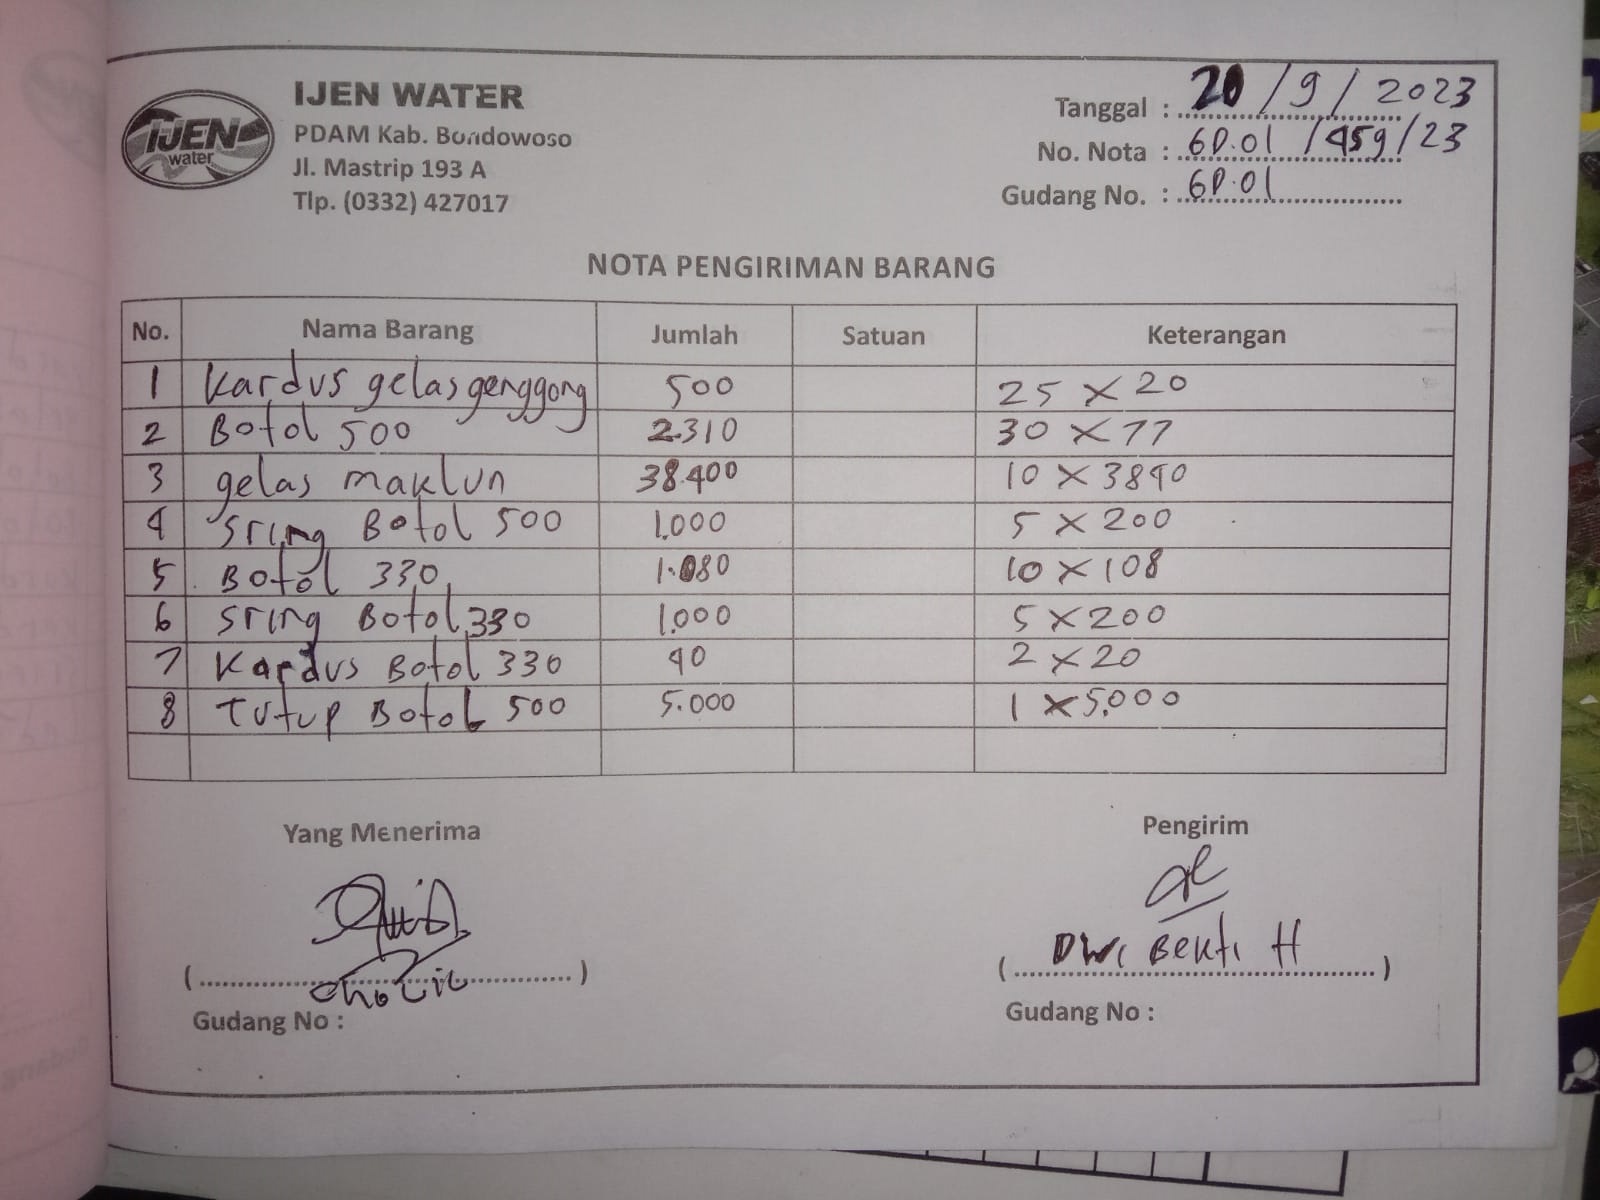 IJEN water
IJEN WATER
PDAM Kab. Bondowoso
Jl. Mastrip 193 A
Tlp. (0332) 427017
Tanggal : 20/9/2023
No. Nota : 6D.01/459/23
Gudang No. : 6D.01
NOTA PENGIRIMAN BARANG
No. Nama Barang Jumlah Satuan Keterangan
1 Kardus gelas genggong 500 25 x 20
2 Botol 500 2.310 30 x 77
3 gelas maklun 38.400 10 x 3840
4 Sring Botol 500 1.000 5 x 200
5 Botol 330 1.080 10 x 108
6 Sring Botol 330 1.000 5 x 200
7 Kardus Botol 330 40 2 x 20
8 Tutup Botol 500 5.000 1 x 5.000
Yang Menerima Pengirim
(Cholil) (Dwi Bekti H)
Gudang No : Gudang No :